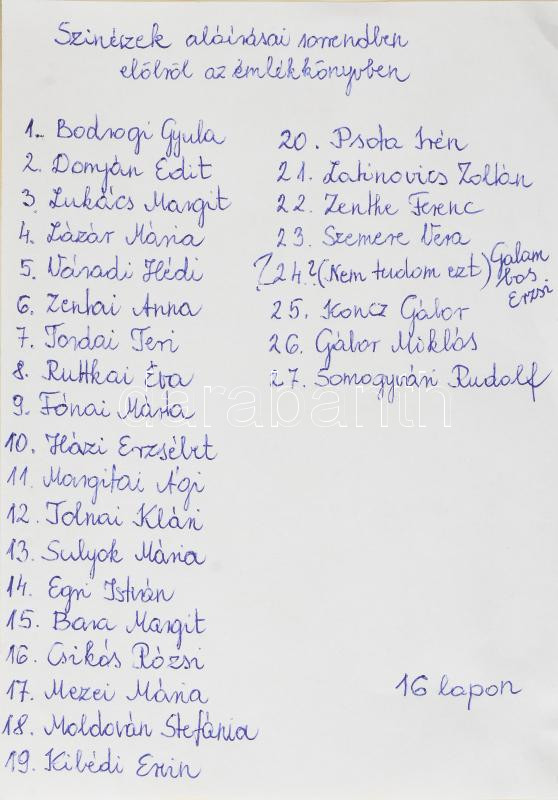 Színészek aláírásai sorrendben
előlről az emlékkönyvben
1. Bodrogi Gyula
2. Domján Edit
3. Lukács Margit
4. Lázár Mária
5. Váradi Hédi
6. Zentai Anna
7. Tordai Teri
8. Ruttkai Éva
9. Fónai Mária
10. Házi Erzsébet
11. Margitai Ági
12. Tolnai Klári
13. Sulyok Mária
14. Egri István
15. Bara Margit
16. Csikós Rózsi
17. Mezei Mária
18. Moldován Stefánia
19. Kibédi Ervin
20. Psota Irén
21. Latinovics Zoltán
22. Zenthe Ferenc
23. Szemere Vera
?24?(Nem tudom ezt) Galam
bos
Erzsi
25. Koncz Gábor
26. Gábor Miklós
27. Somogyvári Rudolf
16 lapon
darabanth